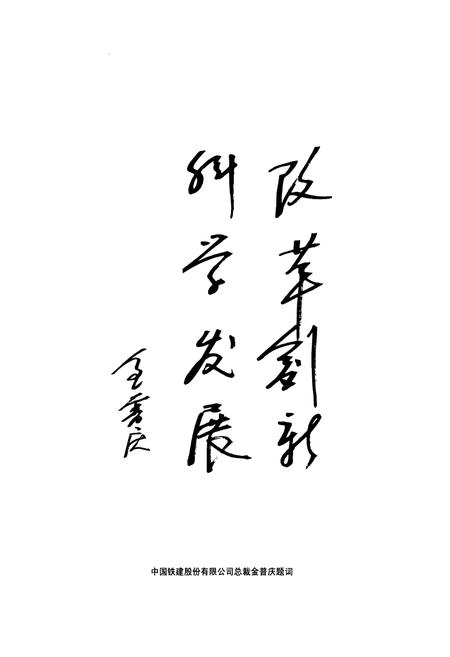 改革创新
科学发展
金普庆
中国铁建股份有限公司总裁金普庆题词